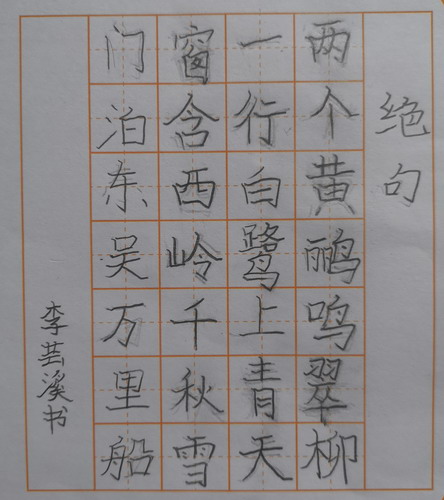 绝句
两个黄鹂鸣翠柳
一行白鹭上青天
窗含西岭千秋雪
门泊东吴万里船
李芸溪书